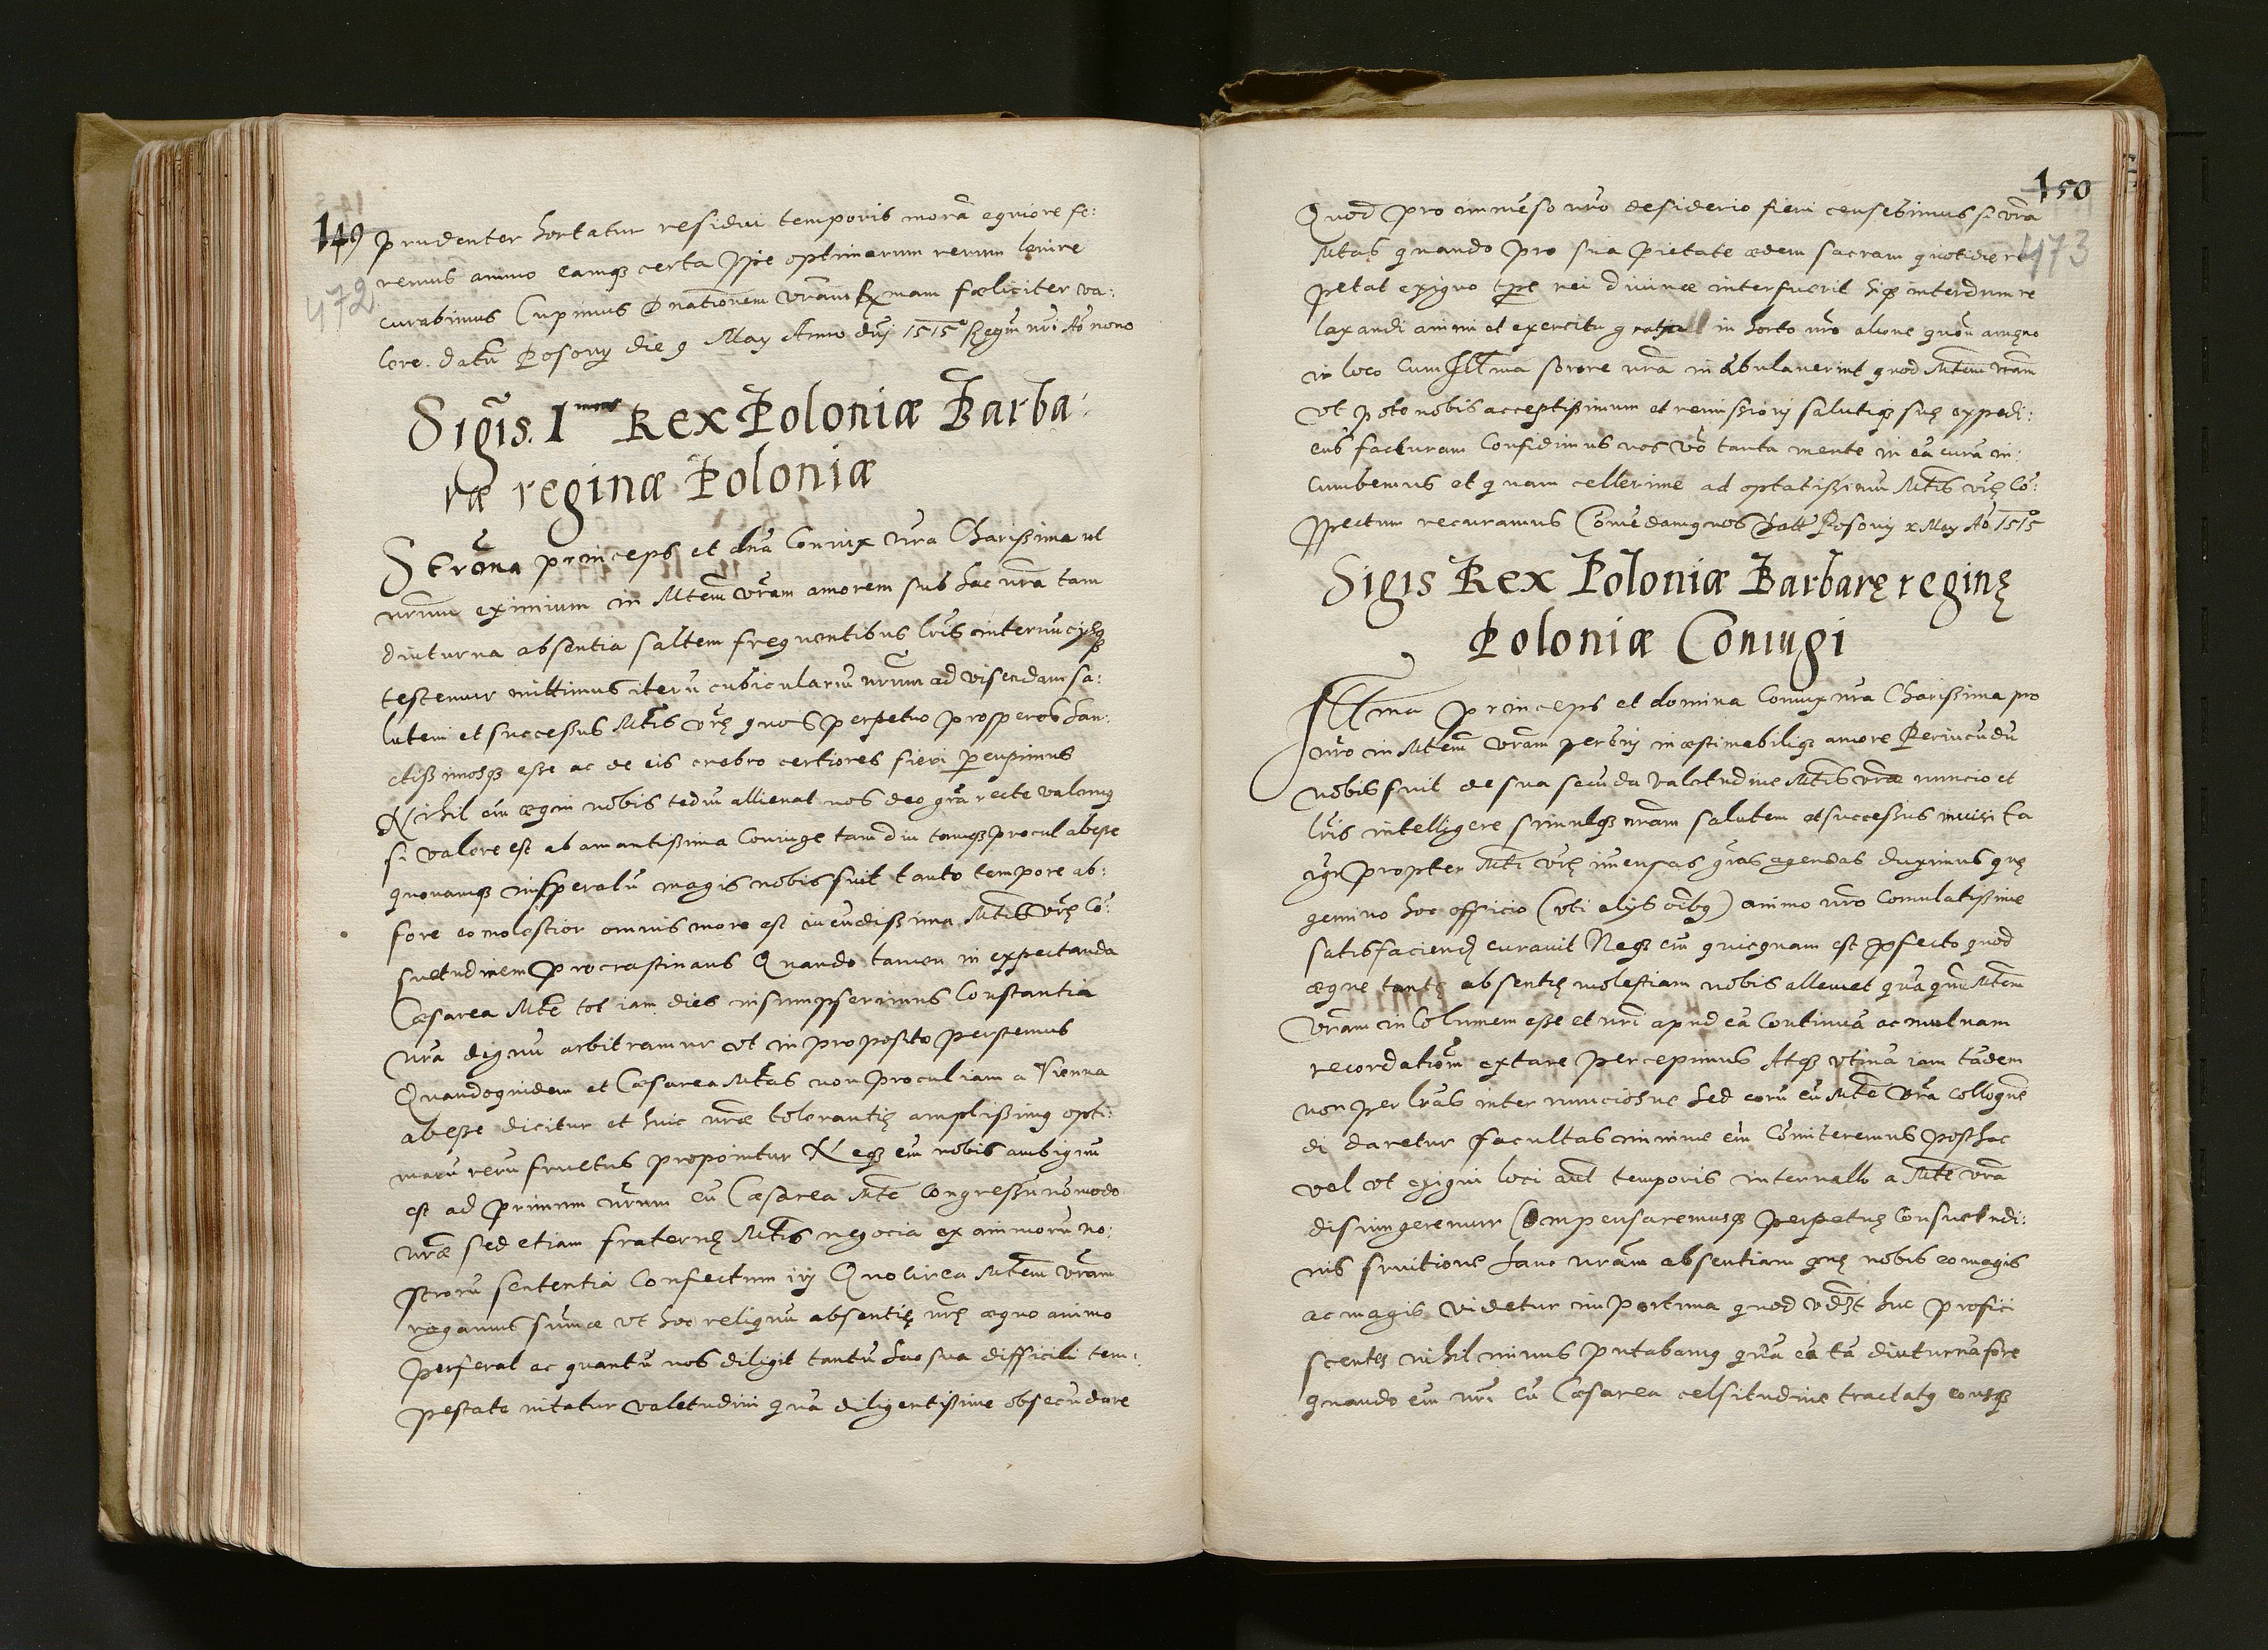 149
472
prudenter hortatur residui temporis morã equiore fe:
remus animo eamq̃ certa sp̃e optimarum rerum lenire
curabimus Cupimus D nationem vrãm Rx̃mam fœliciter va:
lere. datũ Posonÿ die 9 May Anno dnj 1515° Regnj nrj Ao nono
Sigis̃. I mus Rex Poloniæ Barba:
ræ reginæ Poloniæ
Serẽna princeps et dnã Coniux nrã Charißima ut
nr̃um eximium in Mtem̃ vrãm amorem sub hac nrã tam
diuturna absentia saltem frequentibus lrĩs internuciÿsq̃
testemur mittimus iterũ cubiculariũ nr̃um ad visendam sa:
lutem et succeßus Mtĩs vrę̃ quos perpetuo prosperos lau:
tißimosq̃ eße ac de eis crebro certiores fieri percupimus
Nihil em̃ ægri nobis tediũ allienat nos deo grã recte valemꝰ
si valere est ab amantißima Coniuge tam diu tamq̃ procul abeße
quonamq̃ insperatũ magis nobis fuit tanto tempore ab:
fore eo molestior omnis mora est iucundißima Mtĩs vrę̃ Cõ:
suetudinem procrastinans Quando tamen in expectanda
Cæsarea Mtẽ tot iam dies insumpserimus Constantia
nrã dignũ arbitramur vt in proposito perstemus
Quandoquidem et Cæsarea Mtas non procul iam a Vienna
abeße dicitur et huic nræ tolerantię amplißimꝰ opti:
marũ rerũ fructus proponitur Neq̃ em̃ nobis ambiguũ
est ad primum nr̃um cũ Cæsarea Mtẽ Congreßũ nõ modo
nr̃æ sed etiam fraternę Mtis negocia ex animorũ no:
strorũ sententia Confectum irj Quocirca Mtem̃ vrãm
rogamus sum̃e vt hoc reliquũ absentię nrę̃ æquo animo
perferat ac quantũ nos diligit tantũ hac sua difficili tem:
pestate nitatur valetudini quã diligentißime obsecũdare
150
473
Quod pro immẽso nrõ desiderio fieri censebimus si vrã
Mtas quando pro sua pietate ædem sacram quotidie re
petat exiguo tp̃e rei diuinæ interfuerit hisq̃ interdum re
laxandi animi et exercitu in horto nrõ alioue quõu amęno
in loco Cum Illma sorore nrã inãbulauerint quod Mtem̃ vrãm
vt pote nobis acceptißimum et remißionj salutiq̃ suę expedi:
ens facturam Confidimus nos vẽo tanta mente in eã curã in:
Cumbemus et quam cellerime ad optatißimũ Mtis vrę̃ Cõ:
spectum recuramus Cõmedamqꝫ nos datt Posonÿ x May Ao 1515
Sigis Rex Poloniæ Barbarę reginę
Poloniæ Coniugi
Illma princeps et domina Coniux nrã Charißima pro
nrõ in Mtem̃ vrãm perbrj inæstimabiliq̃ amore Periucundũ
nobis fuit de sua secũda valetudine Mtis vræ nuncio et
lrĩs intelligere simulq̃ nrãm salutem et succeßus inuisi ta
igr̃ propter Mti vrę̃ im̃ensas grãs agendas duximus quę
gemino hoc officio (vti alÿs oĩbꝰ) animo nrõ Comulatißime
satisfaciendj curauit Neq̃ em̃ quicquam est ꝓfecto quod
æque tantę absentię molestiam nobis alleuiet quã qũm Mtem̃
vrãm in Columem eße et nrĩ apud eã Continuã ac mutuam
recordatiom̃ extare percepimus Atq̃ vtinã iam tãdem
non per lrãs inter nunciosue sed corũ cũ Mtẽ vrã Colloquẽ
di daretur facultas minime em̃ Cõmiteremus post hac
vel vt exigui loci aut temporis interuallo a Mtẽ vrã
disiungeremur Compensaremusq̃ perpetuę Consuetudi:
nis fruitione hanc nrãm absentiam quę nobis eo magis
ac magis videtur importuna quod vd̃zt huc profici
scentes nihil minus putabamꝰ quã eã tã diuturnã fore
quando em̃ nrĩ cũ Cæsarea celsitudine tractatꝰ eousq̃